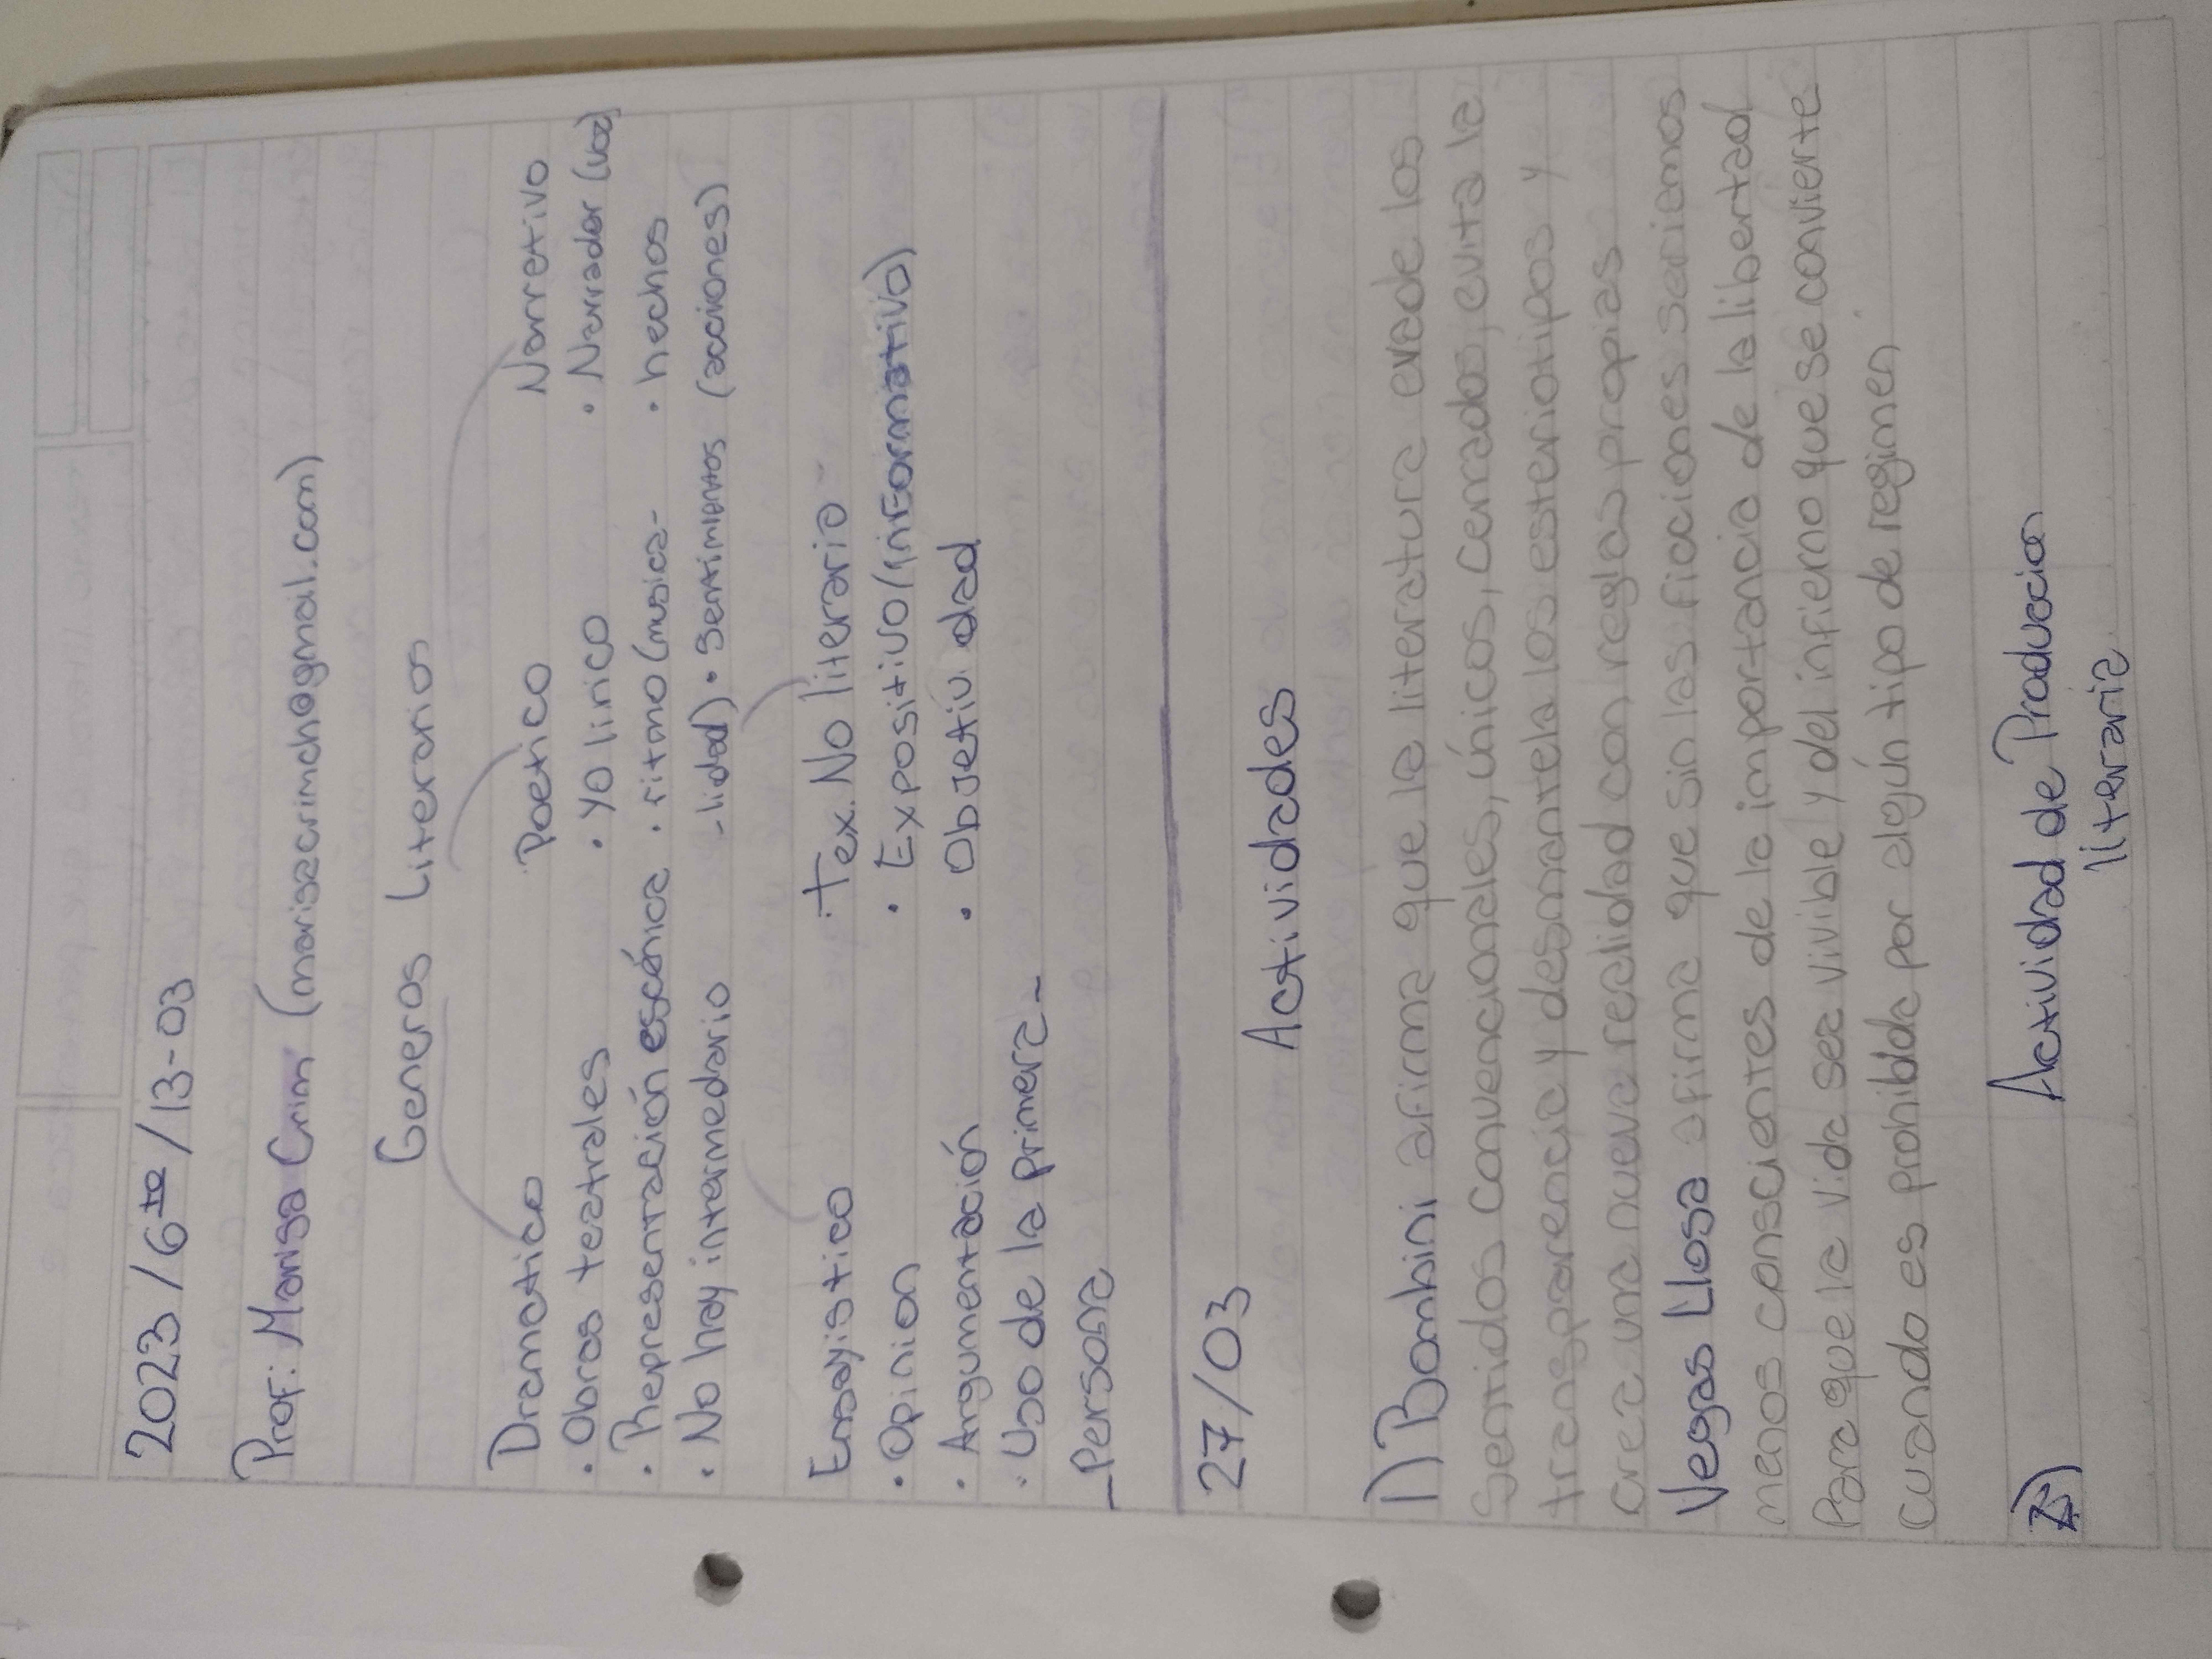 2023 / 6to / 13-03
Prof: Marisa Crim (marisacrimch@gmail.com)
Generos Literarios
Dramatico Poetico Narrativo
· Obras teatrales · Yo lirico · Narrador (voz)
· Representación escénica · ritmo (musica- · hechos
· No hay intermedario -lidad) · Sentimientos (acciones)
Ensayistico Tex. No literario
· Opinion · Expositivo (informativo)
· Argumentación · Objetividad
· Uso de la primera-
-Persona
27/03
Actividades
1) Bombini afirma que la literatura evade los
Sentidos convencionales, únicos, cerrados, evita la
transparencia y desmantela los esteriotipos y
crea una nueva realidad con reglas propias
Vegas Llosa afirma que sin las ficciones seriemos
menos conscientes de la importancia de la libertad
Para que la vida sea vivible y del infierno que se convierte
cuando es prohibida por algún tipo de regimen
2) Actividad de Produccion
literaria